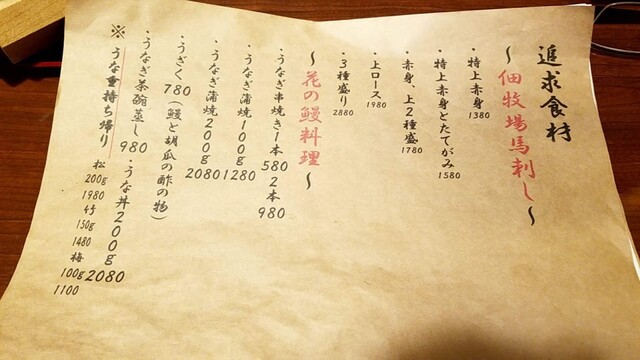 追求食材
～佃牧場馬刺し～
・特上赤身1380
・特上赤身とたてがみ1580
・赤身、上2種盛1780
・上ロース1980
・3種盛り2880
～花の鰻料理～
・うなぎ串焼き1本580 2本980
・うなぎ蒲焼100g1280
・うなぎ蒲焼200g2080
・うざく780(鰻と胡瓜の酢の物)
・うなぎ茶碗蒸し980・うな丼200g2080
※うな重持ち帰り 松200g1980竹150g1480梅100g1100